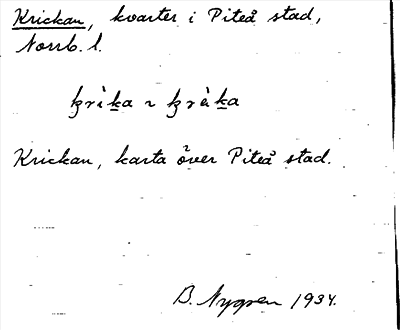 Krickan, kvarter i Piteå stad,
Norrb. l.
krìka ~ krèka
Krickan, karta över Piteå stad.
B. Nygren 1934.